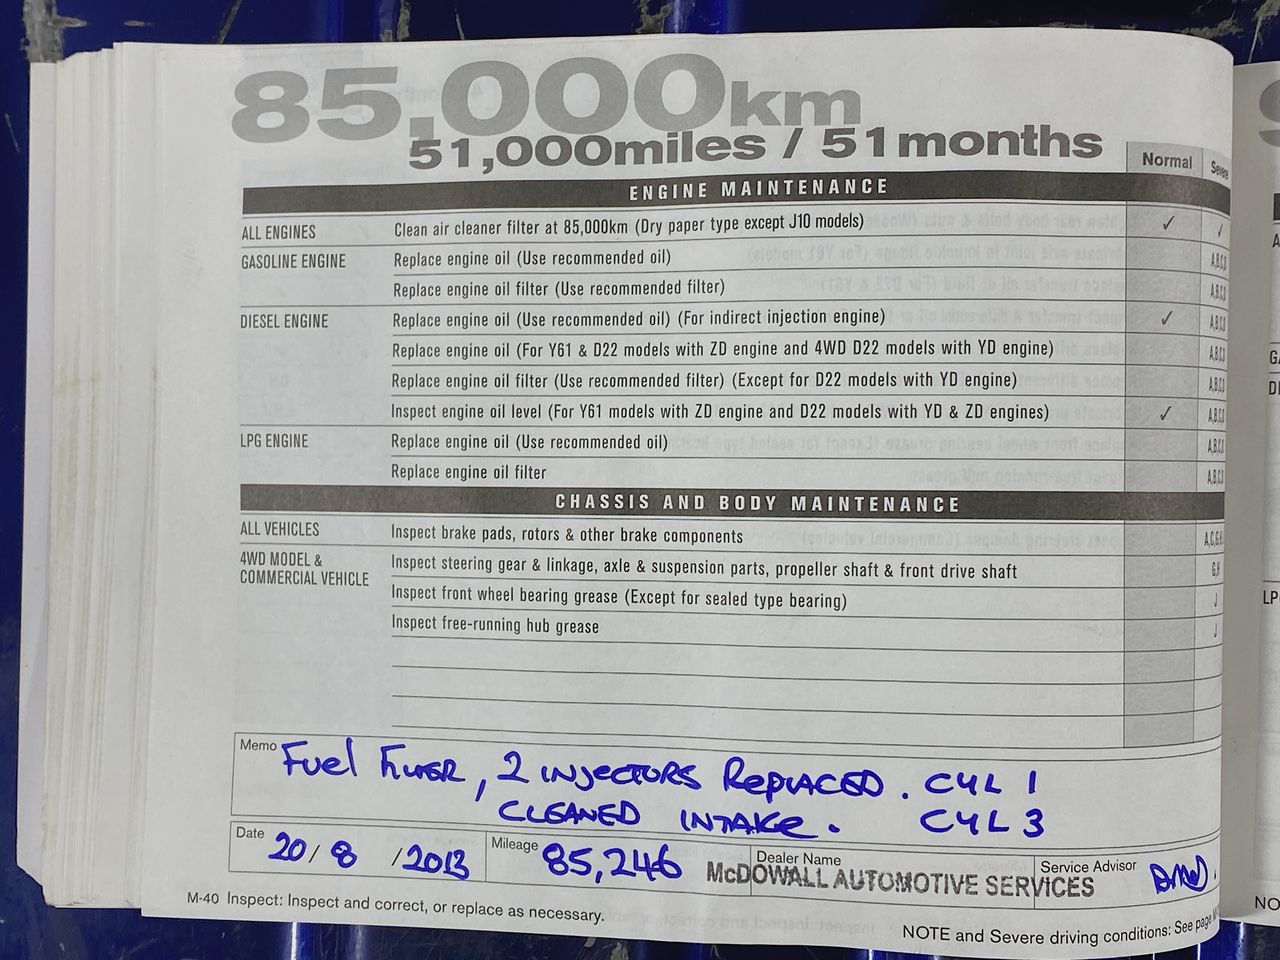 85,000km
51,000miles / 51months
Normal Severe
ENGINE MAINTENANCE
ALL ENGINES Clean air cleaner filter at 85,000km (Dry paper type except J10 models) ✓ ✓
GASOLINE ENGINE Replace engine oil (Use recommended oil) A,B,C,D
Replace engine oil filter (Use recommended filter) A,B,C,D
DIESEL ENGINE Replace engine oil (Use recommended oil) (For indirect injection engine) ✓ A,B,C,D
Replace engine oil (For Y61 & D22 models with ZD engine and 4WD D22 models with YD engine) A,B,C,D
Replace engine oil filter (Use recommended filter) (Except for D22 models with YD engine) A,B,C,D
Inspect engine oil level (For Y61 models with ZD engine and D22 models with YD & ZD engines) ✓ A,B,C,D
LPG ENGINE Replace engine oil (Use recommended oil) A,B,C,D
Replace engine oil filter A,B,C,D
CHASSIS AND BODY MAINTENANCE
ALL VEHICLES Inspect brake pads, rotors & other brake components A,C,G,H
4WD MODEL & COMMERCIAL VEHICLE Inspect steering gear & linkage, axle & suspension parts, propeller shaft & front drive shaft G,H
Inspect front wheel bearing grease (Except for sealed type bearing) J
Inspect free-running hub grease J
Memo Fuel FILTER, 2 INJECTORS REPLACED. CYL 1
CLEANED INTAKE. CYL 3
Date 20/8/2013 Mileage 85,246 Dealer Name McDOWALL AUTOMOTIVE SERVICES Service Advisor
M-40 Inspect: Inspect and correct, or replace as necessary.
NOTE and Severe driving conditions: See page